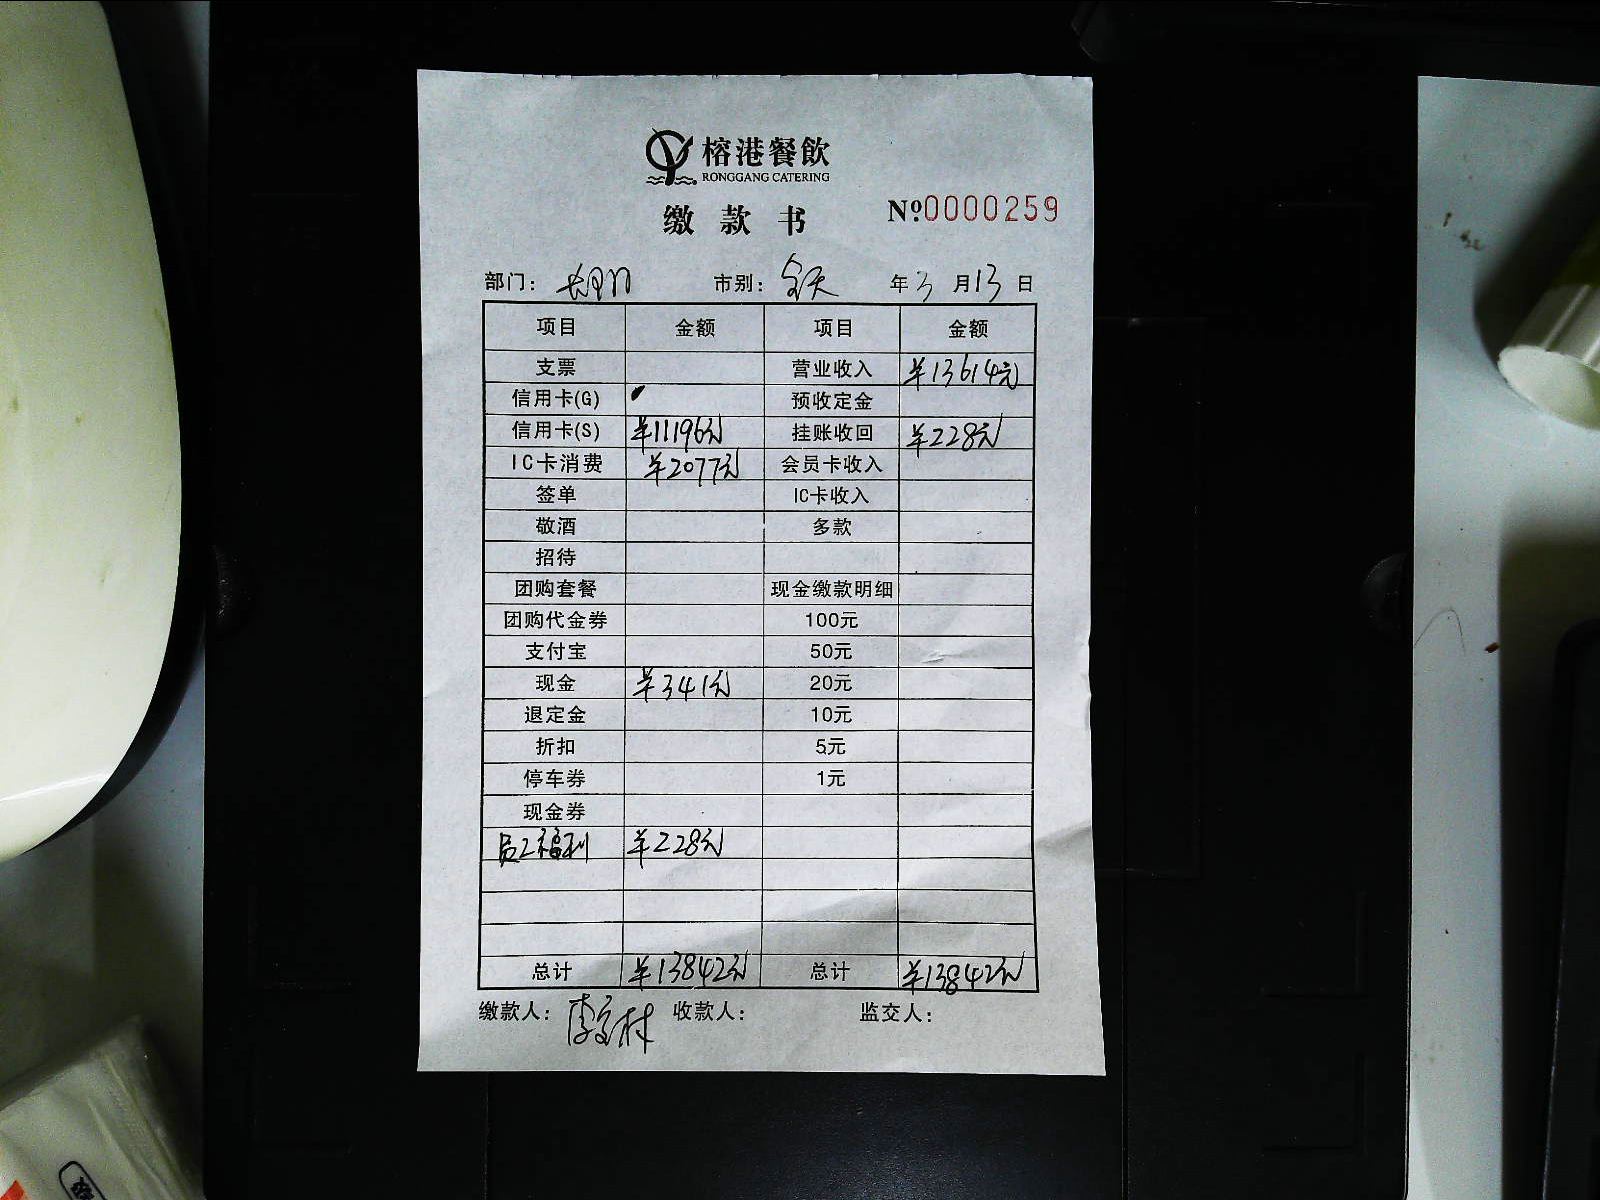 榕港餐飲
RONGGANG CATERING
缴款书
№0000259
部门： 市别：全天 年3月13日
项目 金额 项目 金额
支票 营业收入 ¥13614元
信用卡(G) 预收定金
信用卡(S) ¥11196元 挂账收回 ¥228元
IC卡消费 ¥2077元 会员卡收入
签单 IC卡收入
敬酒 多款
招待
团购套餐 现金缴款明细
团购代金券 100元
支付宝 50元
现金 ¥341元 20元
退定金 10元
折扣 5元
停车券 1元
现金券
员工福利 ¥228元
总计 ¥13842元 总计 ¥13842元
缴款人：李 林 收款人： 监交人：